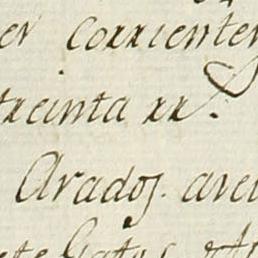 er corrienter
treinta rr.
Arados. avei